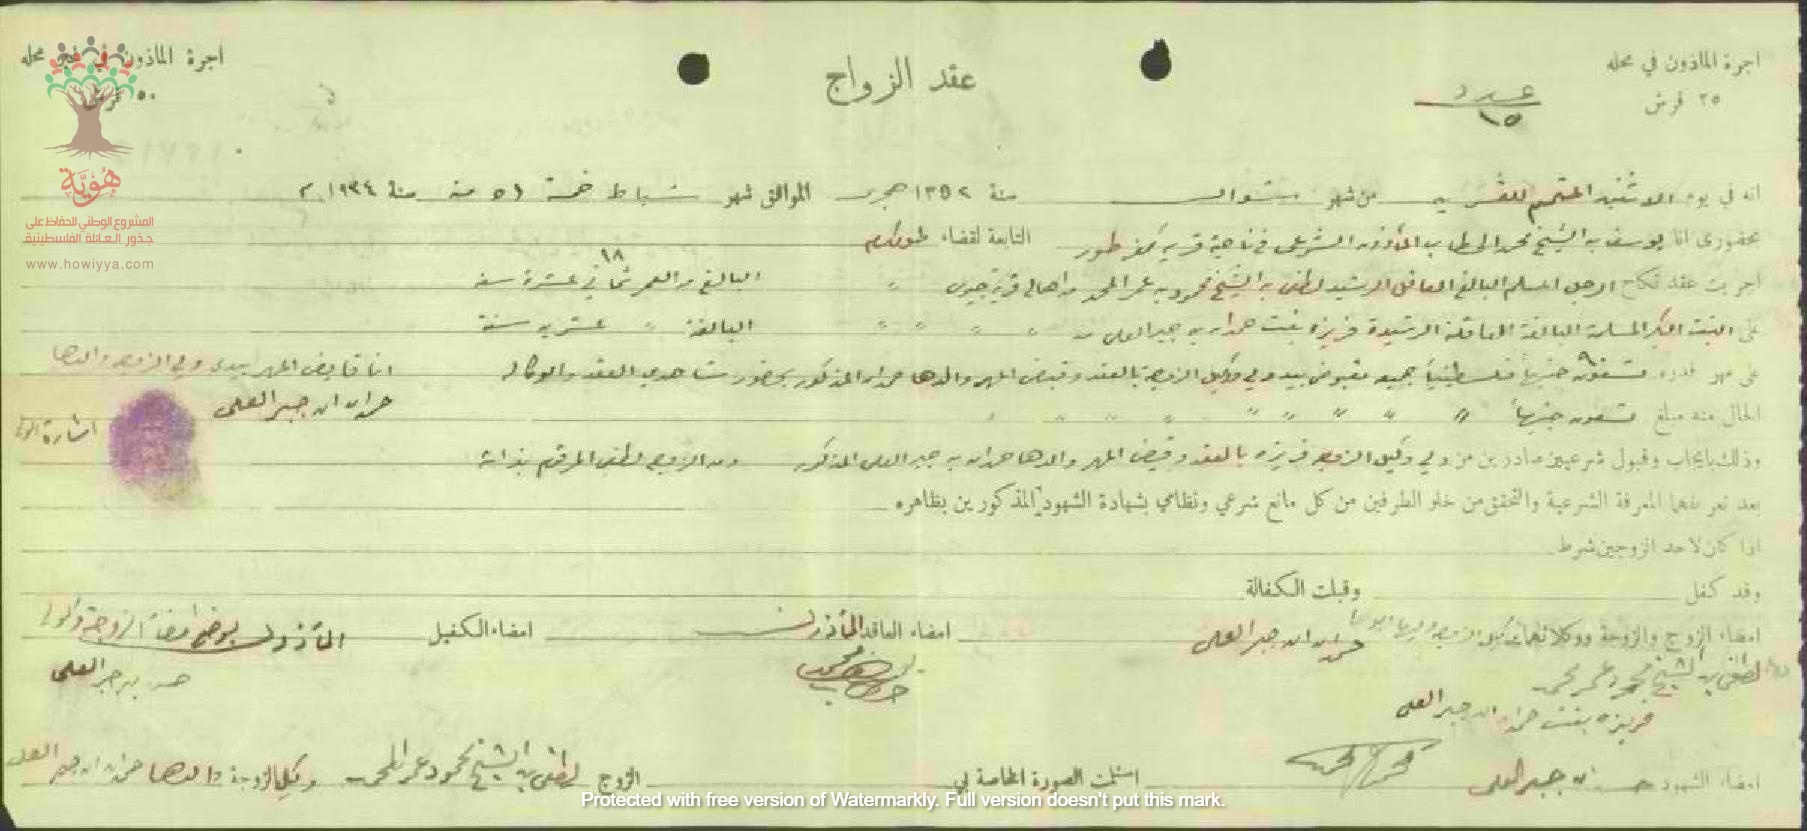 اجرة الماذون في محله
٢٥ قرش
عدد
١٥
عقد الزواج
اجرة الماذون في غير محله
٥٠ قرش
هُوِيَّة
المشروع الوطني للحفاظ على
جذور العائلة الفلسطينية
www.howiyya.com
انه في يوم الاثنين المتمم للعشرين من شهر شوال سنة ١٣٥٢ هجري الموافق شهر شباط خمسة ٥ منه سنة ١٩٣٤ م
بحضوري انا يوسف بن الشيخ محمد الخطاب المأذون الشرعي في ناحية قرية كفر صور التابعة لقضاء طولكرم
اجريت عقد نكاح الرجل المسلم البالغ العاقل الرشيد لطفي بن الشيخ محمود بن عمر المحمد من اهالي قرية جيوس البالغ من العمر ثماني عشرة سنة
١٨
على البنت البكر المسلمة البالغة العاقلة الرشيدة فريزه بنت حمدان بن جبر العلي من " " " " البالغة " عشرين سنة
على مهر قدره تسعون جنيهاً فلسطينياً جميعه مقبوض بيد ولي وكيل الزوجة بالعقد وقبض المهر والدها حمدان المذكور بحضور شاهدي العقد والوكاله
انا قابض المهر بيدي ولي الزوجه والدها
حمدان ابن جبر العلي
الحال منه مبلغ تسعون جنيهاً " " " " " " " "
اشارة
وذلك بايجاب وقبول شرعيين صادرين من ولي وكيل الزوجه فريزه بالعقد وقبض المهر والدها حمدان بن جبر العلي المذكور ومن الزوج لطفي المرقوم بذاته
بعد تعريفهما المعرفة الشرعية والتحقق من خلو الطرفين من كل مانع شرعي ونظامي بشهادة الشهود المذكورين بظاهره
اذا كان لاحد الزوجين شرط
وقد كفل وقبلت الكفالة
امضاء الزوج والزوجة ووكلائهما حمدان ابن جبر العلي امضاء العاقد المأذون امضاء الكفيل المأذون
لطفي بن الشيخ محمود عمر محمد
فريزه بنت حمدان ابن جبر العلي
امضاء الشهود ابن جبر العلي
استلمت الصورة الخاصة بي الزوج لطفي بن الشيخ محمود عمر المحمد وكيل الزوجة والدها حمدان ابن جبر العلي
Protected with free version of Watermarkly. Full version doesn't put this mark.